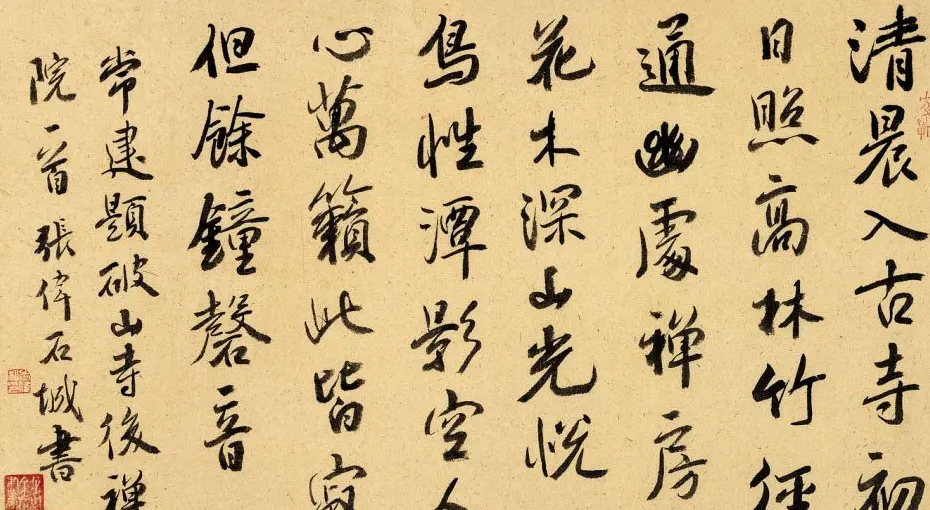 清晨入古寺初
日照高林竹徑
通幽處禅房
花木深山光悦
鳥性潭影空人
心萬籟此皆寂
但餘鐘磬音
常建題破山寺後禅
院一首張偉石城書